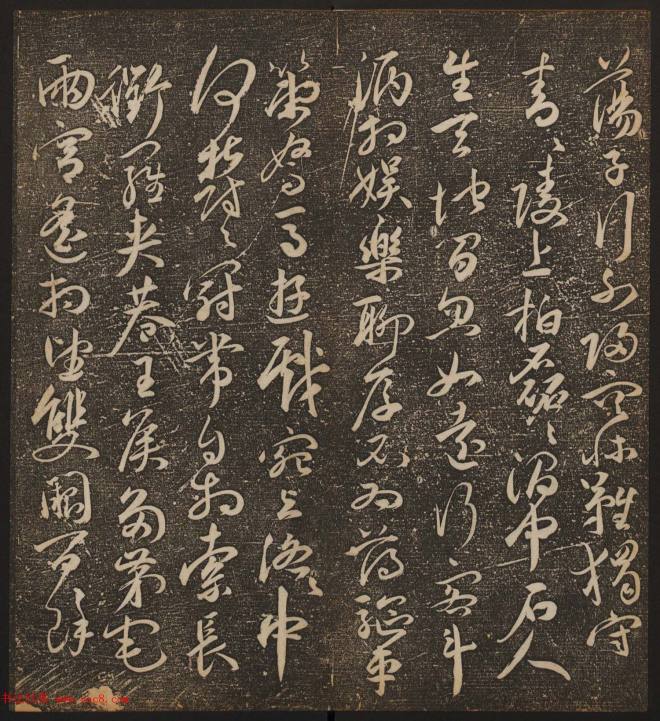 蕩子行不歸空床難獨守
青〻陵上柏磊〻澗中石人
生天地間忽如遠行客斗
酒相娛樂聊厚不為薄驅車
策駑馬遊戲宛与洛〻中
何欝〻冠帶自相索長
衢羅夾巷王侯多第宅
兩宮遙相望雙闕百餘
www.yac8.com